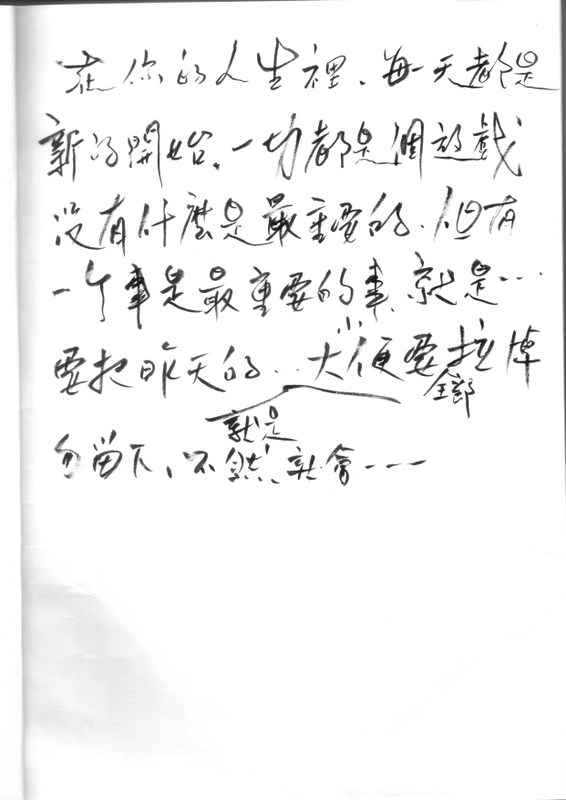 在你的人生裡、每一天都是
新的開始、一切都是個遊戲
沒有什麼是最重要的、但有
一个事是最重要的事、就是…
小
要把昨天的…大便要拉掉
全部
就是
勿留下、不然、就會———